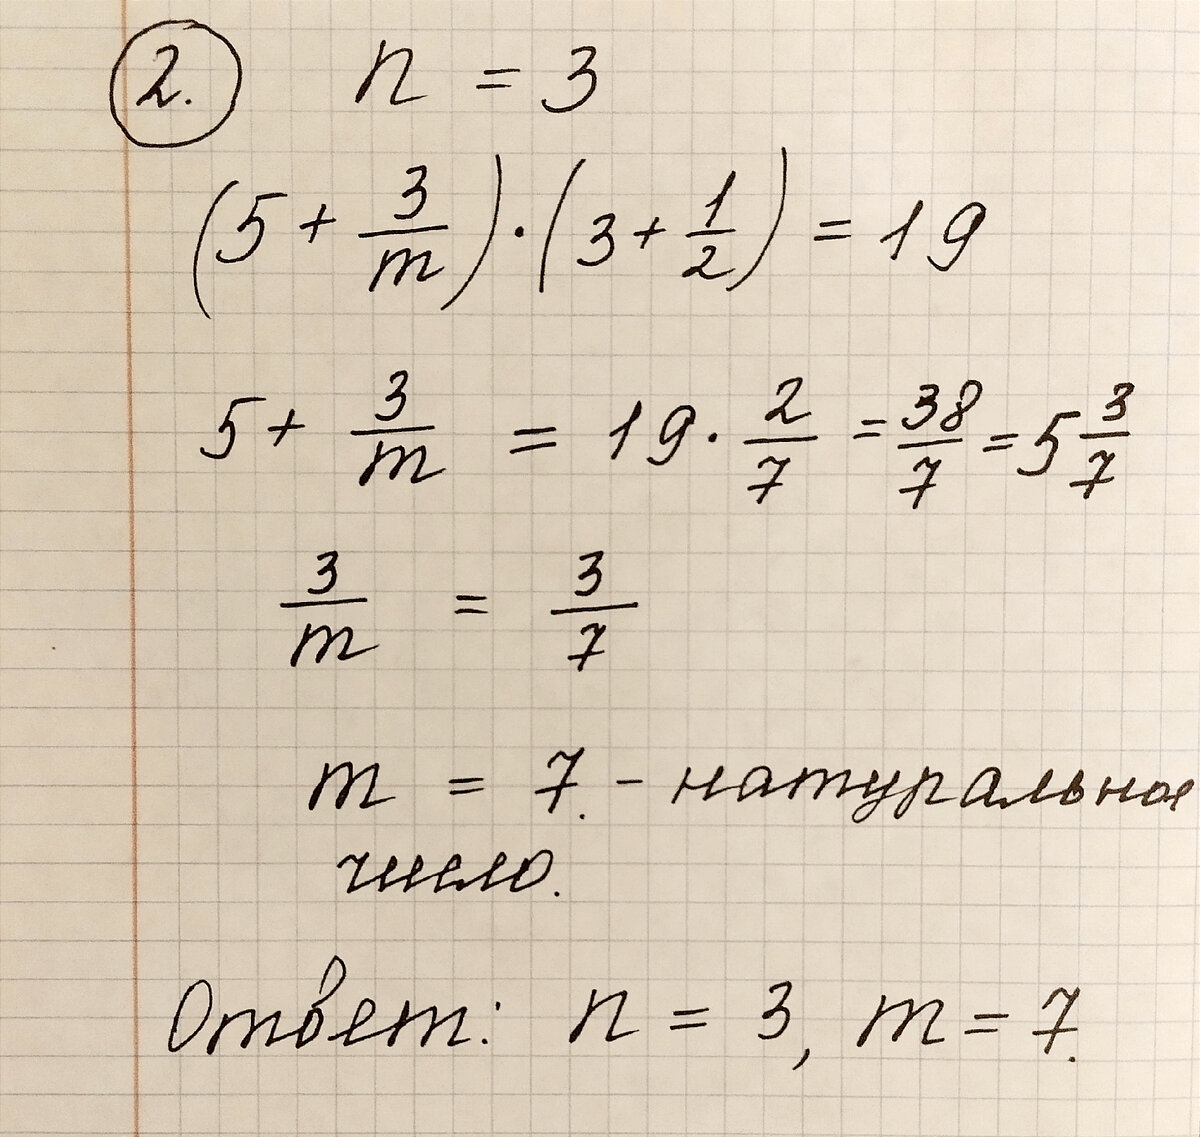 2. n = 3
(5 + 3/m) · (3 + 1/2) = 19
5 + 3/m = 19 · 2/7 = 38/7 = 5 3/7
3/m = 3/7
m = 7. - натуральное
число.
Ответ: n = 3, m = 7.